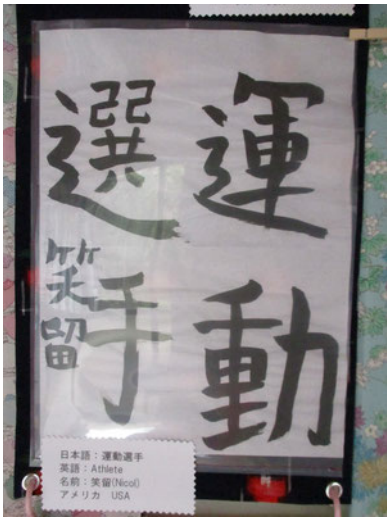 運動
選手
笑留
日本語：運動選手
英語：Athlete
名前：笑留(Nicol)
アメリカ　USA